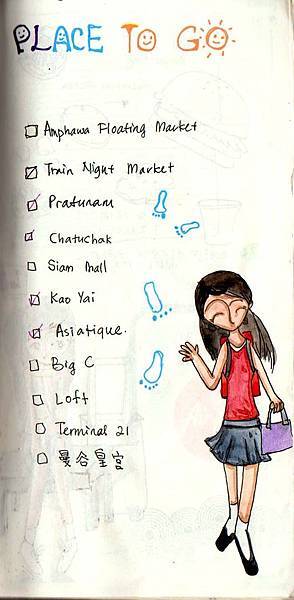 PLACE TO GO
Amphawa Floating Market
Train Night Market
Pratunam
Chatuchak
Siam Mall
Kao Yai
Asiatique.
Big C
Loft
Terminal 21
曼谷皇宫